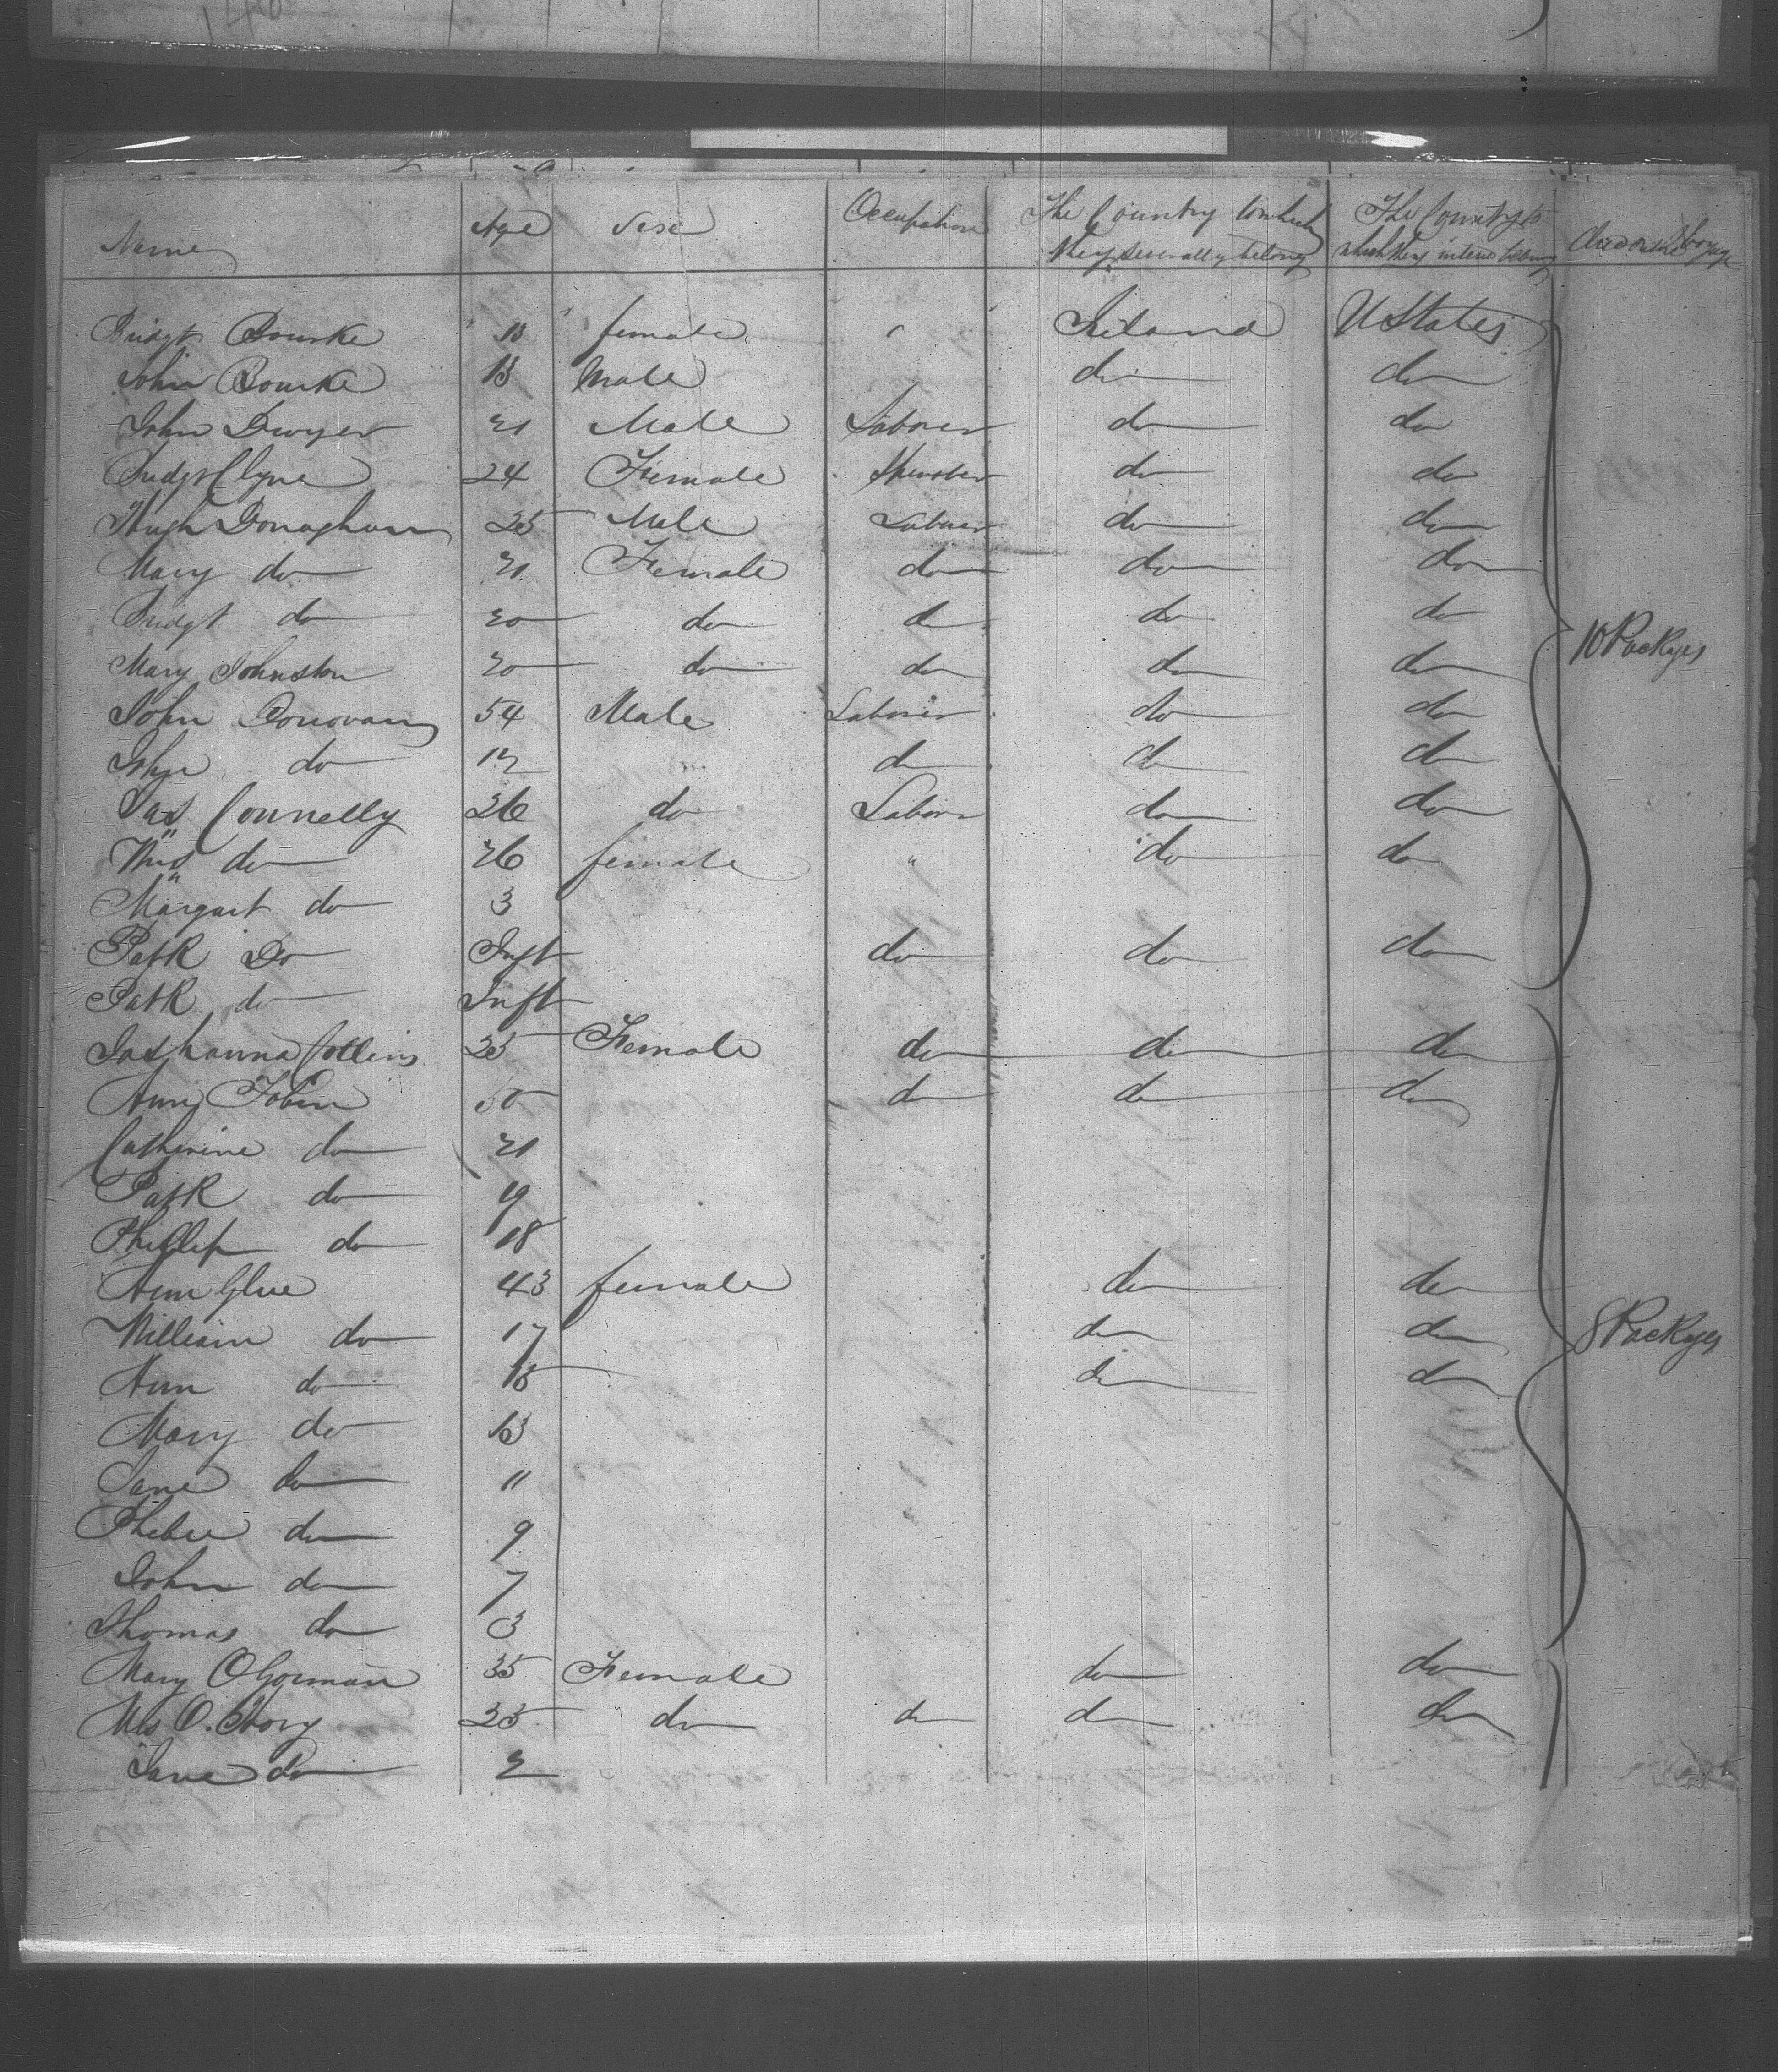 Name Age Sex Occupation The Country to which they severally belong The Country to which they intend belong Died on the voyage
Bridgt Bourke 13 female " Ireland U States
John Bourke 13 Male do do
John Dwyer 21 Male Laborer do do
Bridgt Clyne 24 Female Spinster do do
Hugh Donaghan 25 Male Laborer do do
Mary do 21 Female do do do
Bridgt do 20 do do do do
Mary Johnston 20 do do do do
10 Packges
John Donovan 54 Male Laborer do do
John do 12 do do do
Jas Connelly 26 do Labor do do
Mrs do 26 female " do do
Margart do 3
Patk Do Inft do do do
Patk do Inft
Joshanna Collins 25 Female do do do
Ann Tobin 50 do do do
Catherine do 21
Patk do 19
Phillip do 18
Ann Glue 43 female do do
William do 17 do do
8 Packges
Ann do 15 do do
Mary do 13
Jane do 11
Phebee do 9
John do 7
Thomas do 3
Mary O Gorman 35 Female do do
Mrs O. 25 do do do do
Jane Do 2